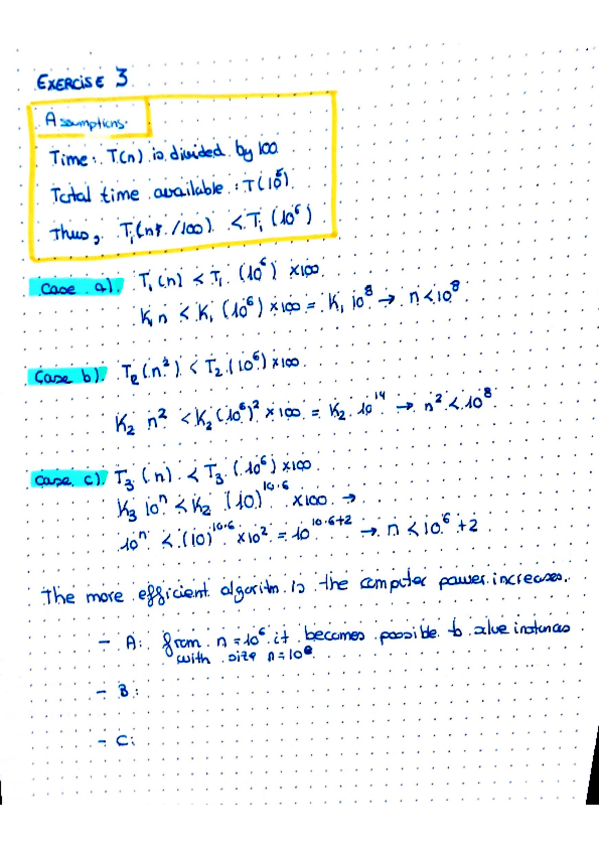 EXERCISE 3
Assumptions.
Time: T(n) is divided by 100
Total time available: T(10⁶)
Thus, T₁(n* /100) < T₁ (10⁶)
Case a). T₁(n) < T₁ (10⁶) ×100.
K₁n < K₁ (10⁶) × 100 = K₁ 10⁸ → n < 10⁸.
Case b). T₂(n²) < T₂ (10⁶) × 100.
K₂ n² < K₂ (10⁶)² × 100 = K₂ 10¹⁴ → n² < 10⁸
Case c). T₃ (n) < T₃ (10⁶) × 100
K₃ 10ⁿ < K₂ (10)^10.6 × 100 →
10ⁿ < (10)^10.6 × 10² = 10^10.6+2 → n < 10⁶ + 2
The more efficient algoritm is the computer power increases.
- A: from n = 10⁶ it becomes possible to solve instances
with size n = 10⁸
- B:
- C: